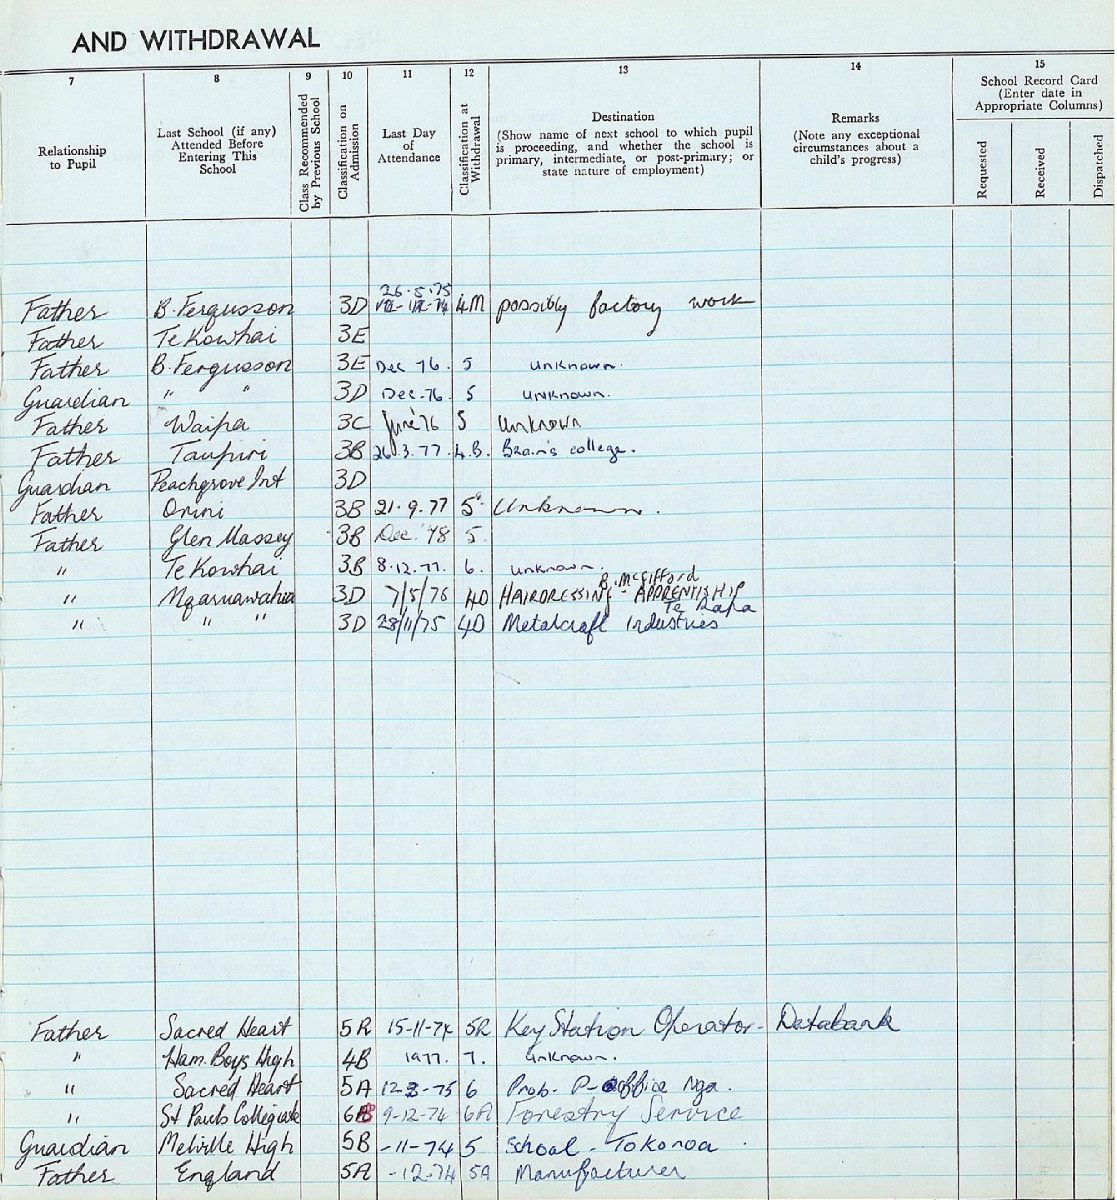 AND WITHDRAWAL
7 8 9 10 11 12 13 14 15
Relationship to Pupil
Last School (if any) Attended Before Entering This School
Class Recommended by Previous School
Classification on Admission
Last Day of Attendance
Classification at Withdrawal
Destination
(Show name of next school to which pupil is proceeding, and whether the school is primary, intermediate, or post-primary; or state nature of employment)
Remarks
(Note any exceptional circumstances about a child's progress)
School Record Card
(Enter date in Appropriate Columns)
Requested
Received
Dispatched
26.5.75
Father B. Fergusson 3D 4M possibly factory work
Father Te Kowhai 3E
Father B. Fergusson 3E Dec 76. 5 unknown.
Guardian " " 3D Dec.76. 5 unknown.
Father Waipa 3C June '76 5 Unknown
Father Taupiri 3B 26.3.77. 4.B. Brain's college.
Guardian Peachgrove Int 3D
Father Orini 3B 21.9.77 5 Unknown.
Father Glen Massey 3B Dec. '78 5.
" Te Kowhai 3B 8.12.77. 6. unknown.
B. McGifford
" Ngaruawahia 3D 7/5/76 4D HAIRDRESSING - APPRENTISHIP
Te Rapa
" " " 3D 28/11/75 4D Metalcraft Industries
Father Sacred Heart 5R 15-11-74 5R Key Station Operator - Databank
" Ham. Boys High 4B 1977. 7. unknown.
" Sacred Heart 5A 6 Prob. P-office Nga.
" St Pauls Collegiate 9-12-74 6A Forestry Service
Guardian Melville High 5B -11-74 5 School - Tokoroa.
Father England 5A -12-74 5A Manufacturer